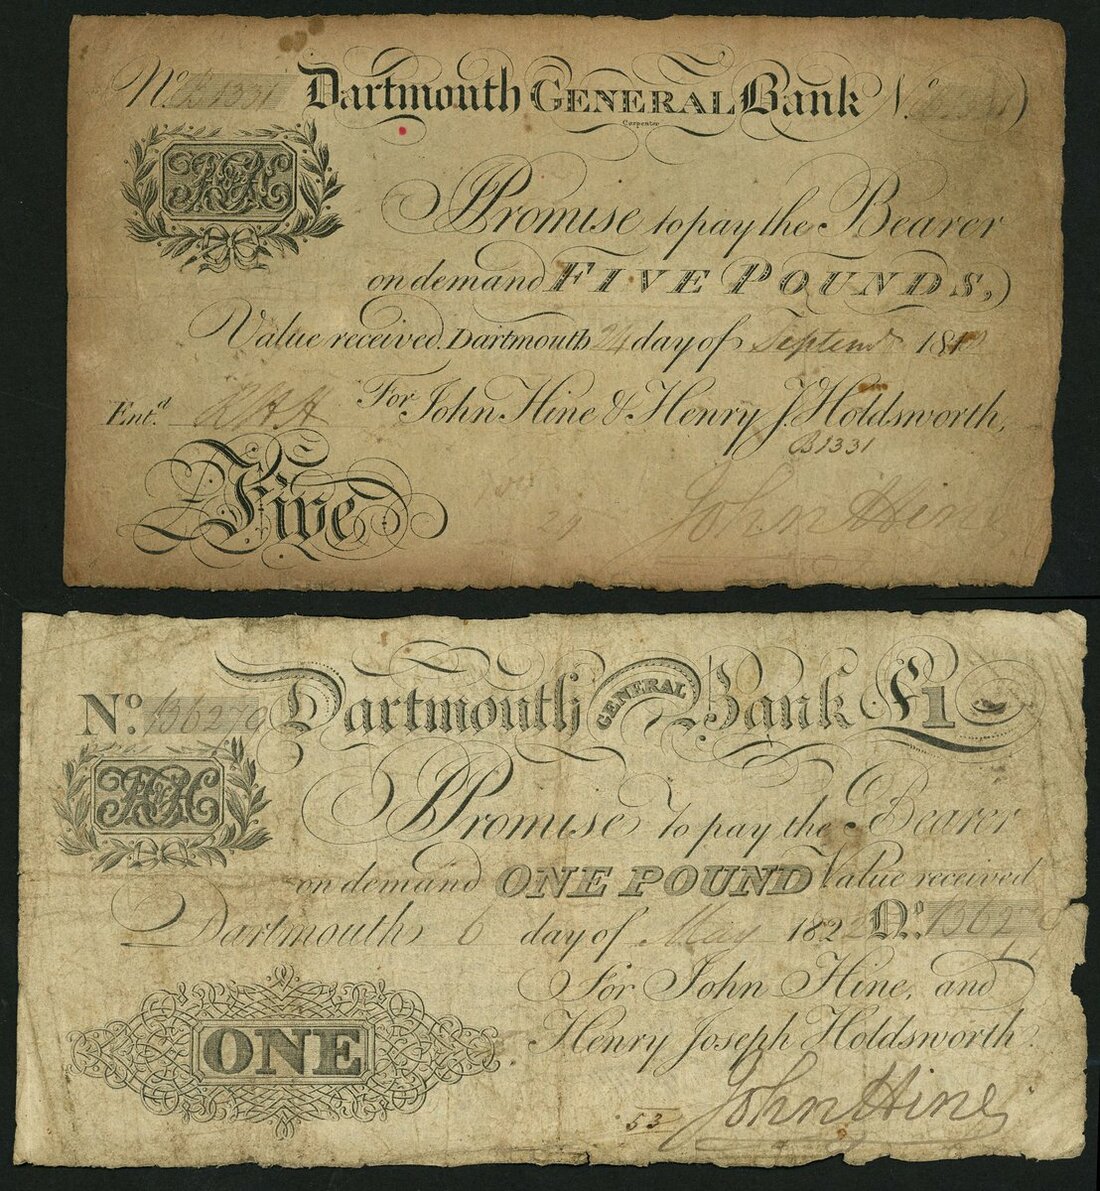 No B1331 Dartmouth GENERAL Bank No
Carpenter
H&H
I Promise to pay the Bearer
on demand FIVE POUNDS,
Value received Dartmouth 24 day of Septemr 18
Entd. HHH For John Hine & Henry J. Holdsworth,
B1331
Five
29 John Hine
No. 13629 Dartmouth GENERAL Bank £1
H&H
I Promise to pay the Bearer
on demand ONE POUND Value received
Dartmouth 6 day of May 1822 No. 13629
For John Hine, and
Henry Joseph Holdsworth
ONE
53 John Hine